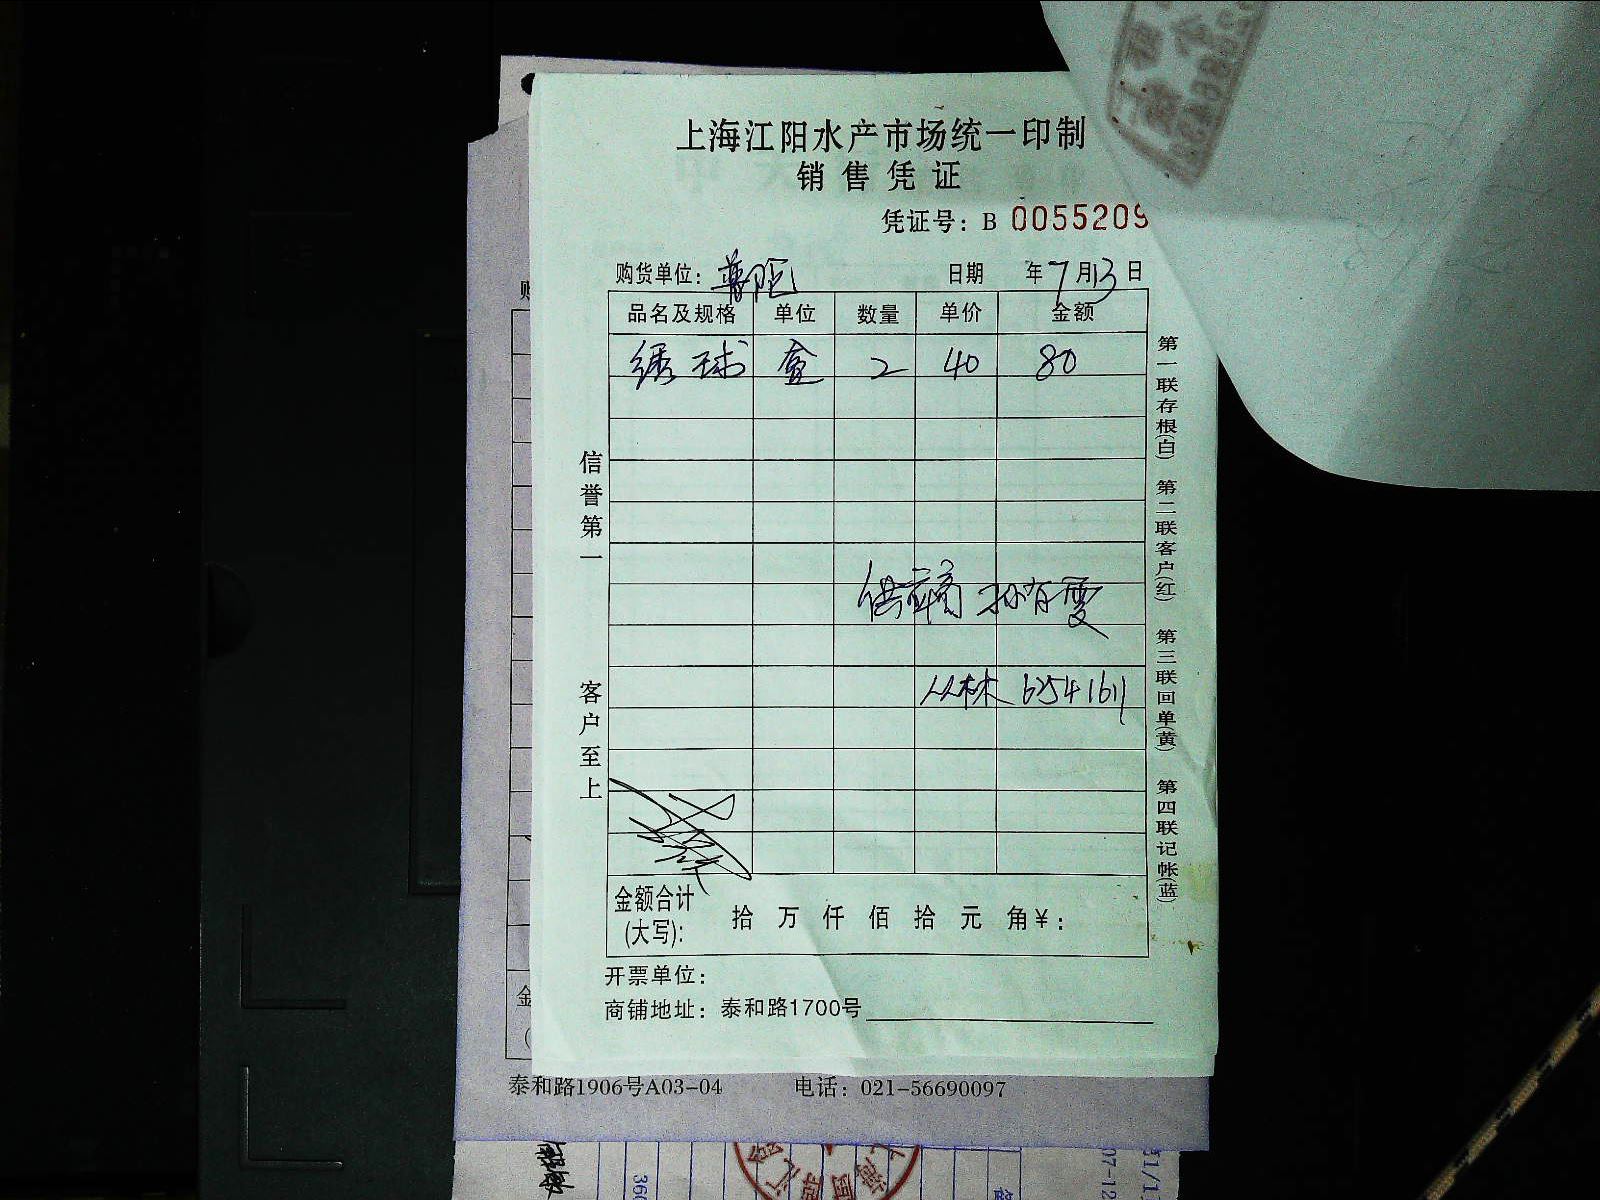 上海江阳水产市场统一印制
销售凭证
凭证号：B 0055209
购货单位：普陀 日期 年7月13日
品名及规格 单位 数量 单价 金额
绣球 盒 2 40 80
信誉第一
客户至上
供应商 孙有雯
丛林 62541611
第一联存根(白) 第二联客户(红) 第三联回单(黄) 第四联记帐(蓝)
金额合计(大写)： 拾 万 仟 佰 拾 元 角 ¥：
开票单位：
商铺地址：泰和路1700号
泰和路1906号A03-04 电话：021-56690097